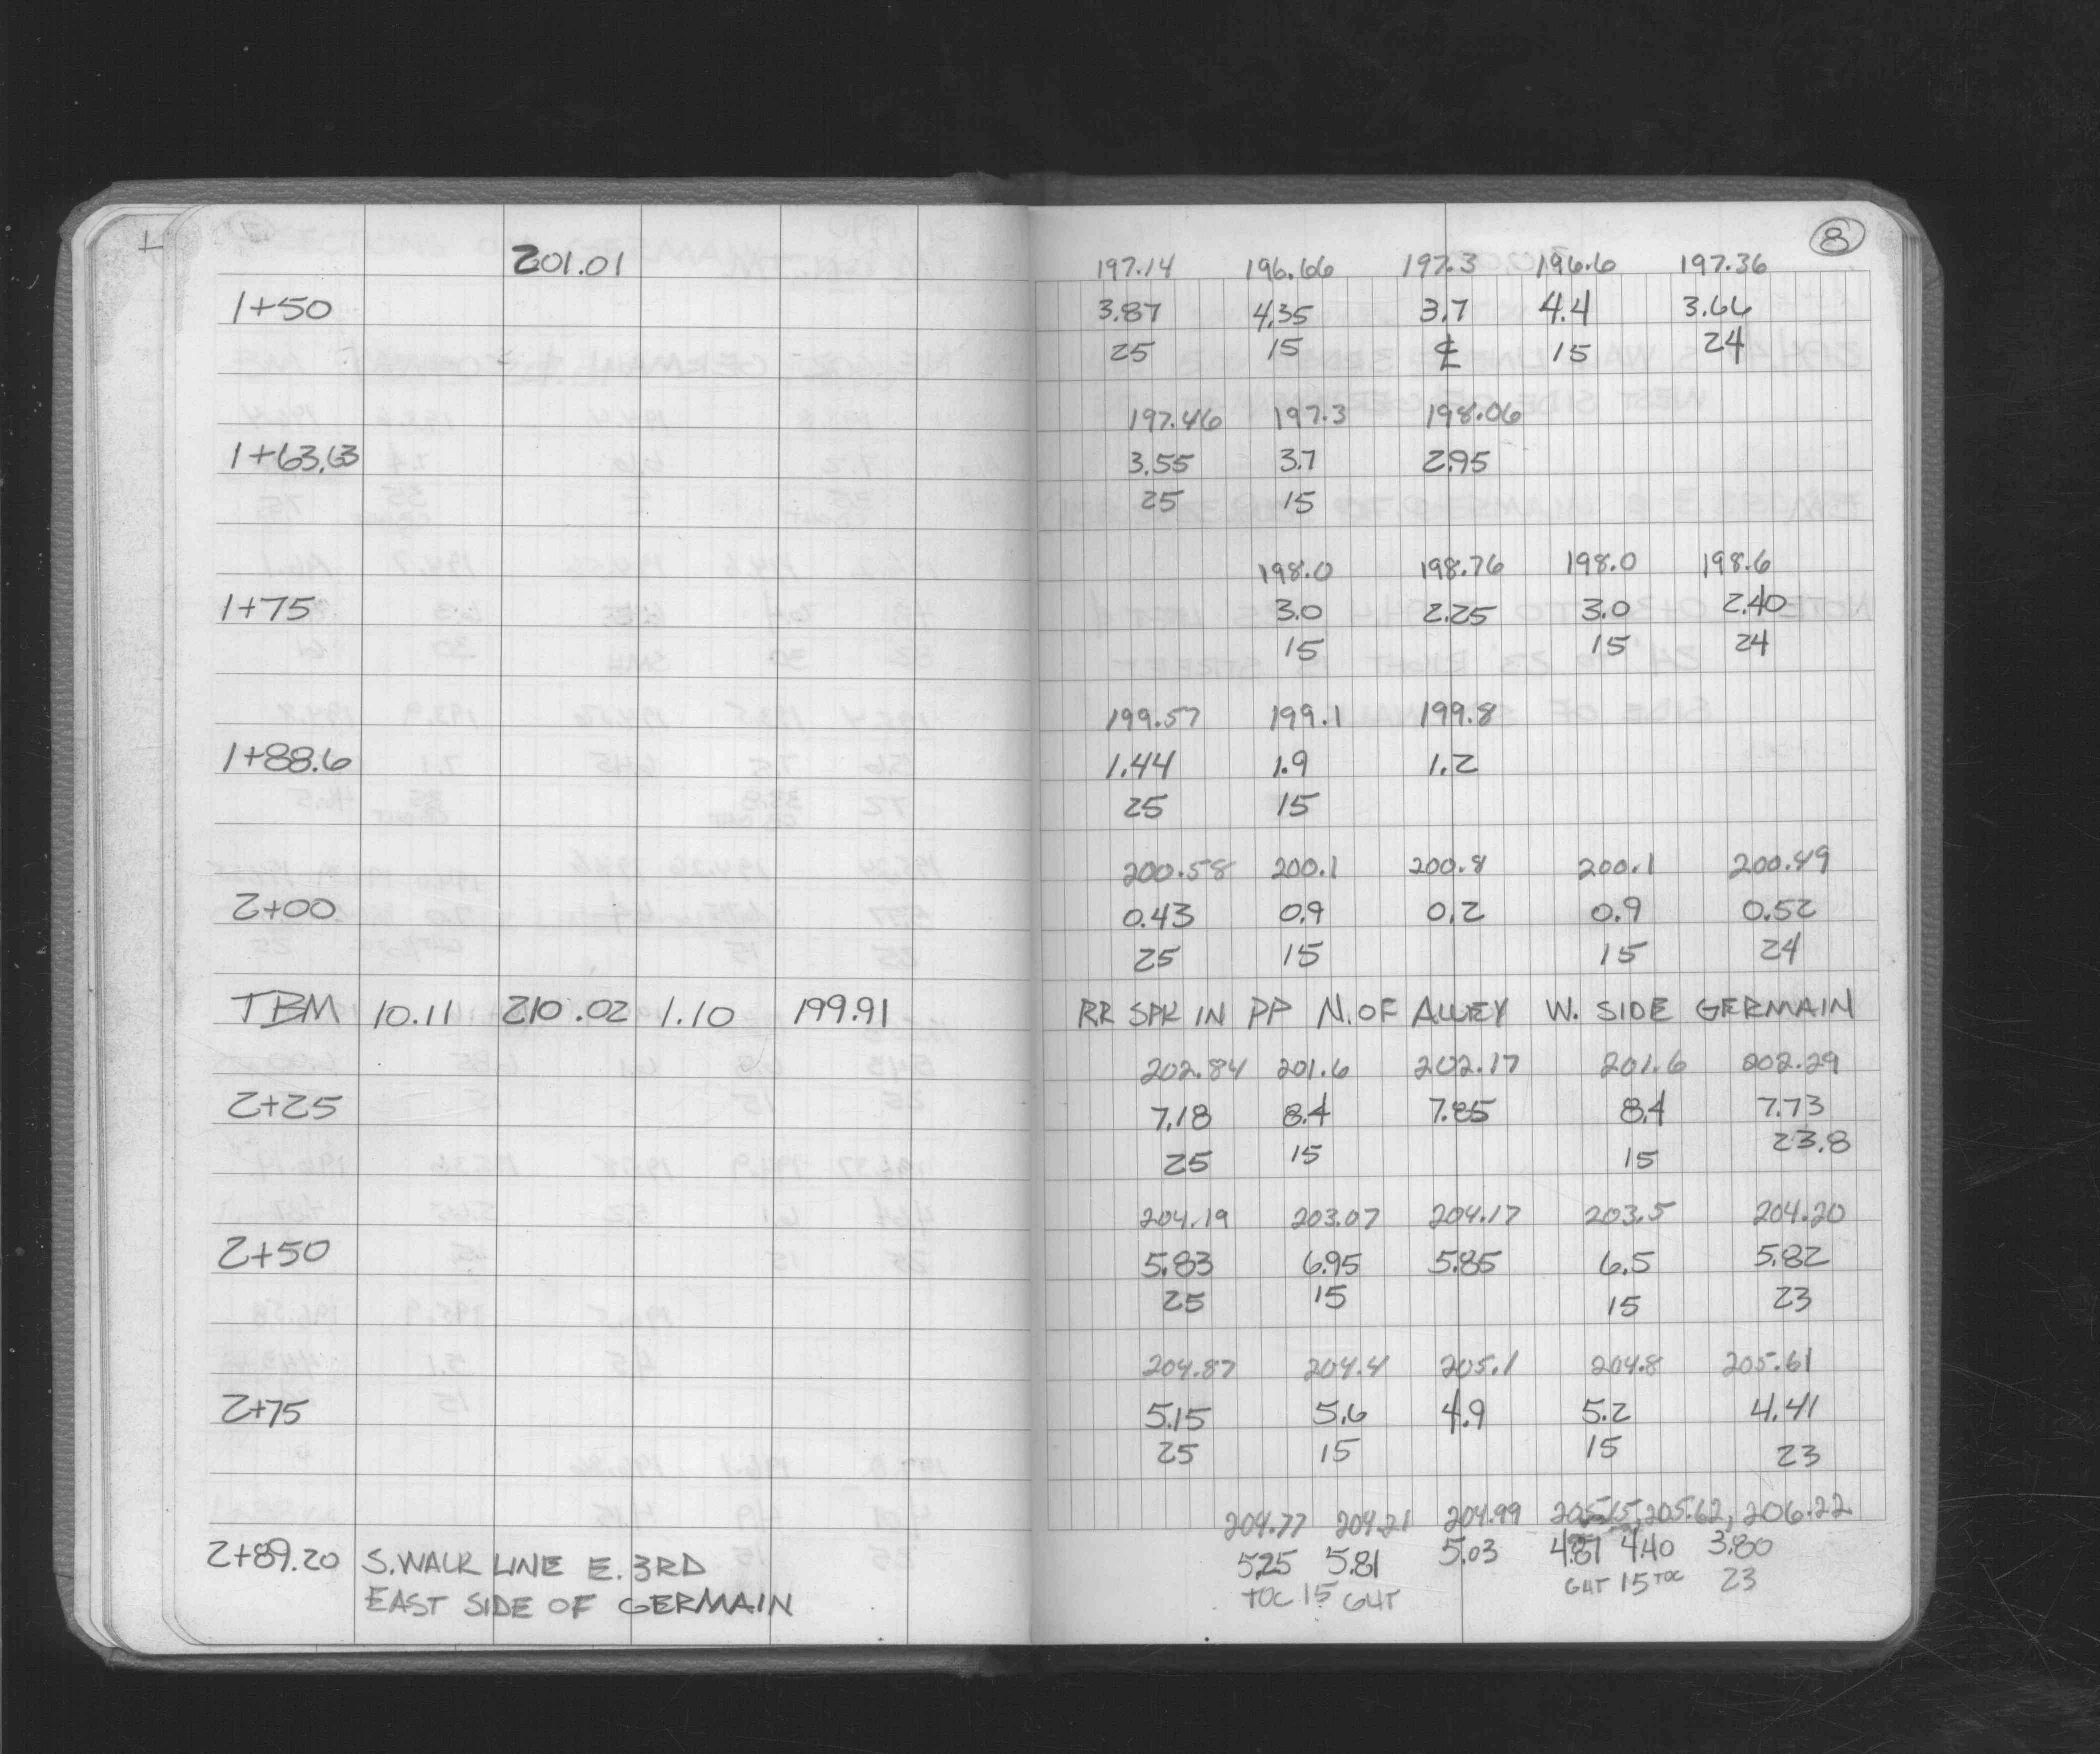 8
201.01 197.14 196.66 197.3 196.6 197.36
1+50 3.87 4.35 3.7 4.4 3.66
25 15 ℄ 15 24
197.46 197.3 198.06
1+63.63 3.55 3.7 2.95
25 15
198.0 198.76 198.0 198.6
1+75 3.0 2.25 3.0 2.40
15 15 24
199.57 199.1 199.8
1+88.6 1.44 1.9 1.2
25 15
200.58 200.1 200.8 200.1 200.49
2+00 0.43 0.9 0.2 0.9 0.52
25 15 15 24
TBM 10.11 210.02 1.10 199.91 RR SPK IN PP N. OF ALLEY W. SIDE GERMAIN
202.84 201.6 202.17 201.6 202.29
2+25 7.18 8.4 7.85 8.4 7.73
25 15 15 23.8
204.19 203.07 204.17 203.5 204.20
2+50 5.83 6.95 5.85 6.5 5.82
25 15 15 23
204.87 204.4 205.1 204.8 205.61
2+75 5.15 5.6 4.9 5.2 4.41
25 15 15 23
204.77 204.21 204.99 205.15, 205.62, 206.22
2+89.20 S. WALK LINE E. 3RD 5.25 5.81 5.03 4.87 4.40 3.80
EAST SIDE OF GERMAIN TOC 15 GUT GUT 15 TOC 23